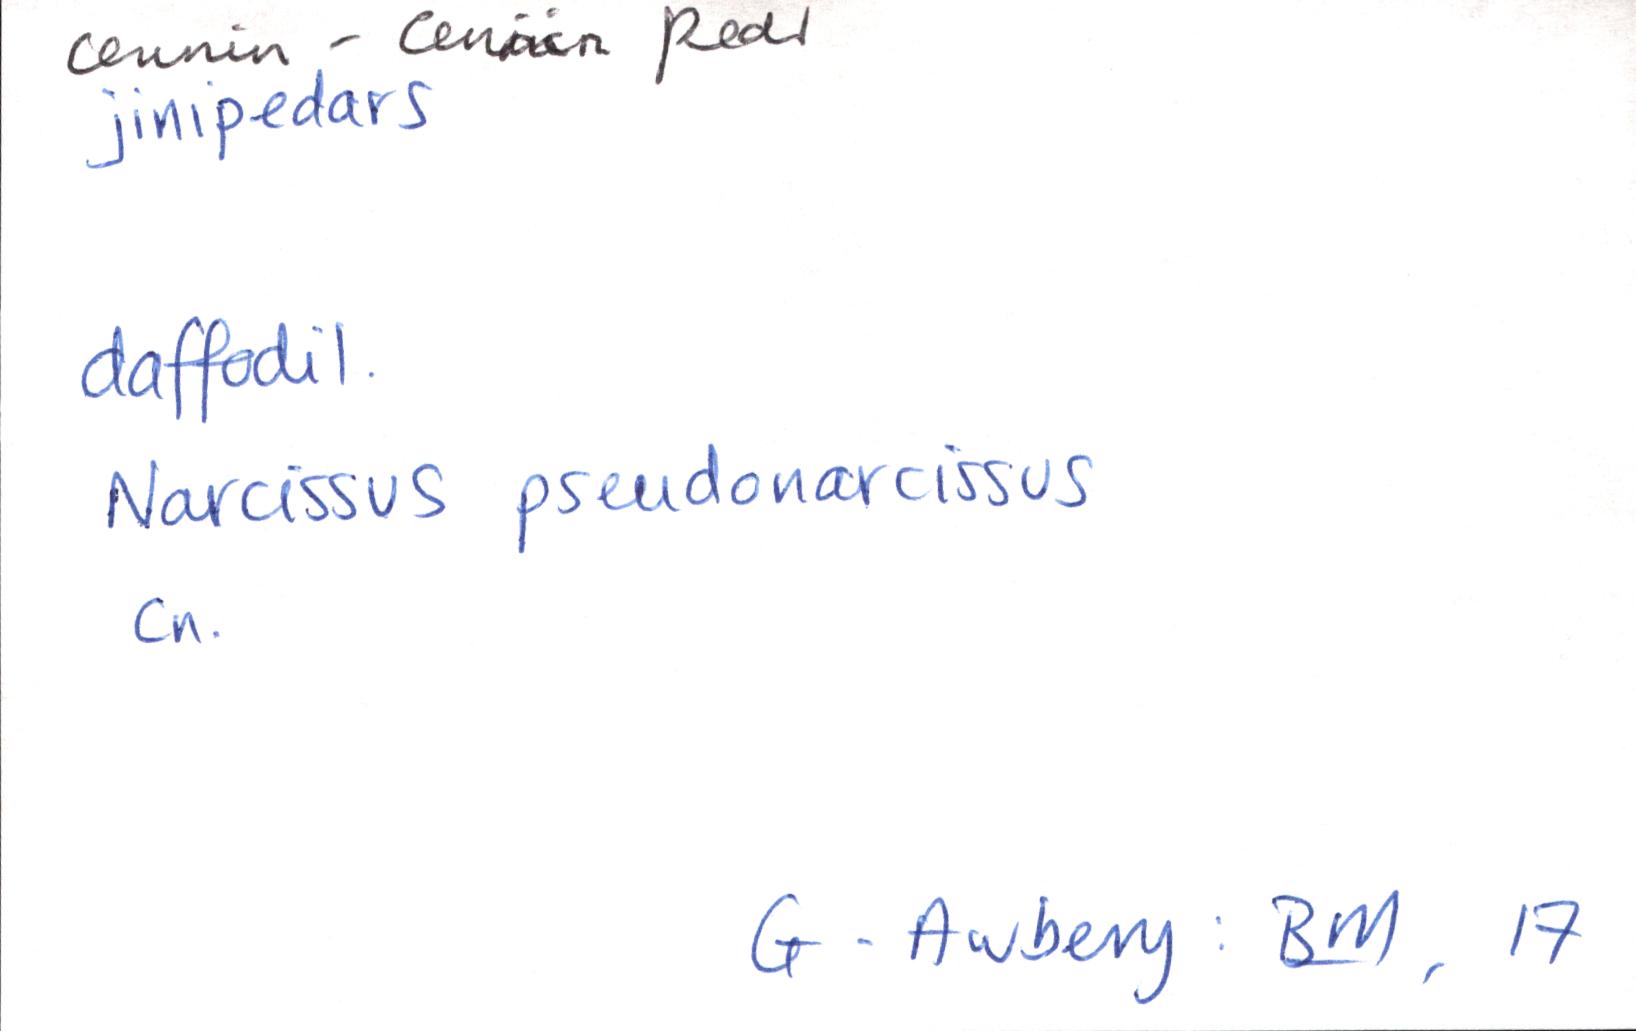 cennin - Cennin Pedr
jinipedars
daffodil.
Narcissus pseudonarcissus
Cn.
G. Awbery: BM, 17